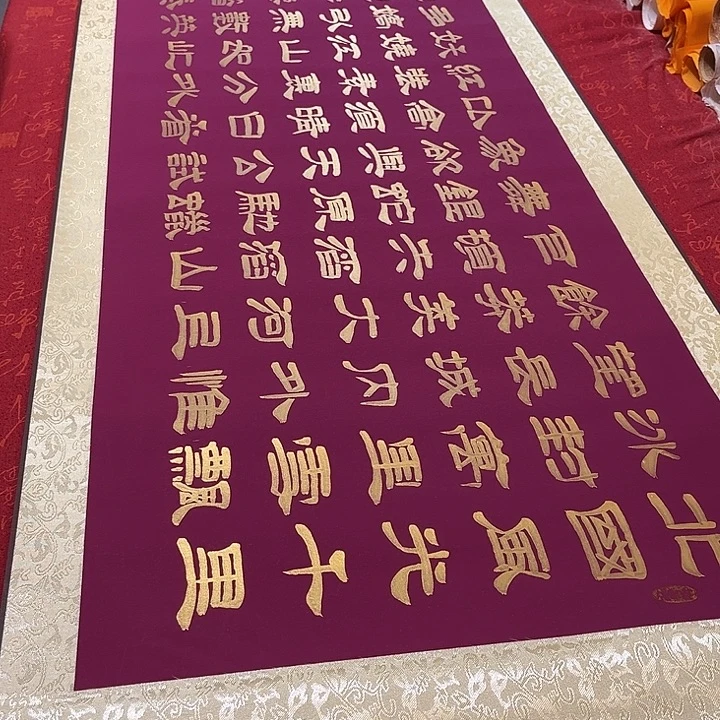 北國風光千里
冰封萬里雪飄
望長城內外惟
餘莽莽大河上
下頓失滔滔山
舞銀蛇原馳蠟
象欲與天公試
比高須晴日看
紅裝素裹分外
妖嬈江山如此
多嬌引無數英